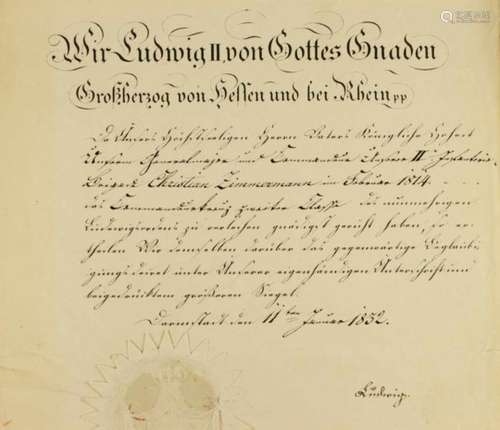 Wir Ludwig II. von Gottes Gnaden
Großherzog von Hessen und bei Rhein pp
Da Unsers Höchstseeligen Herrn Vaters Königliche Hoheit
Unserm Generalmajor und Commandeur Unserer II. Infanterie-
Brigade Christian Zimmermann im Februar 1814
das Commandeurkreuz zweiter Classe des nunmehrigen
Ludwigsordens zu verleihen gnädigst geruht haben, so er-
theilen Wir demselben darüber das gegenwärtige Beglaubi-
gungsdecret unter Unserer eigenhändigen Unterschrift und
beigedrucktem größeren Siegel.
Darmstadt den 11ten Januar 1832.
Ludwig.